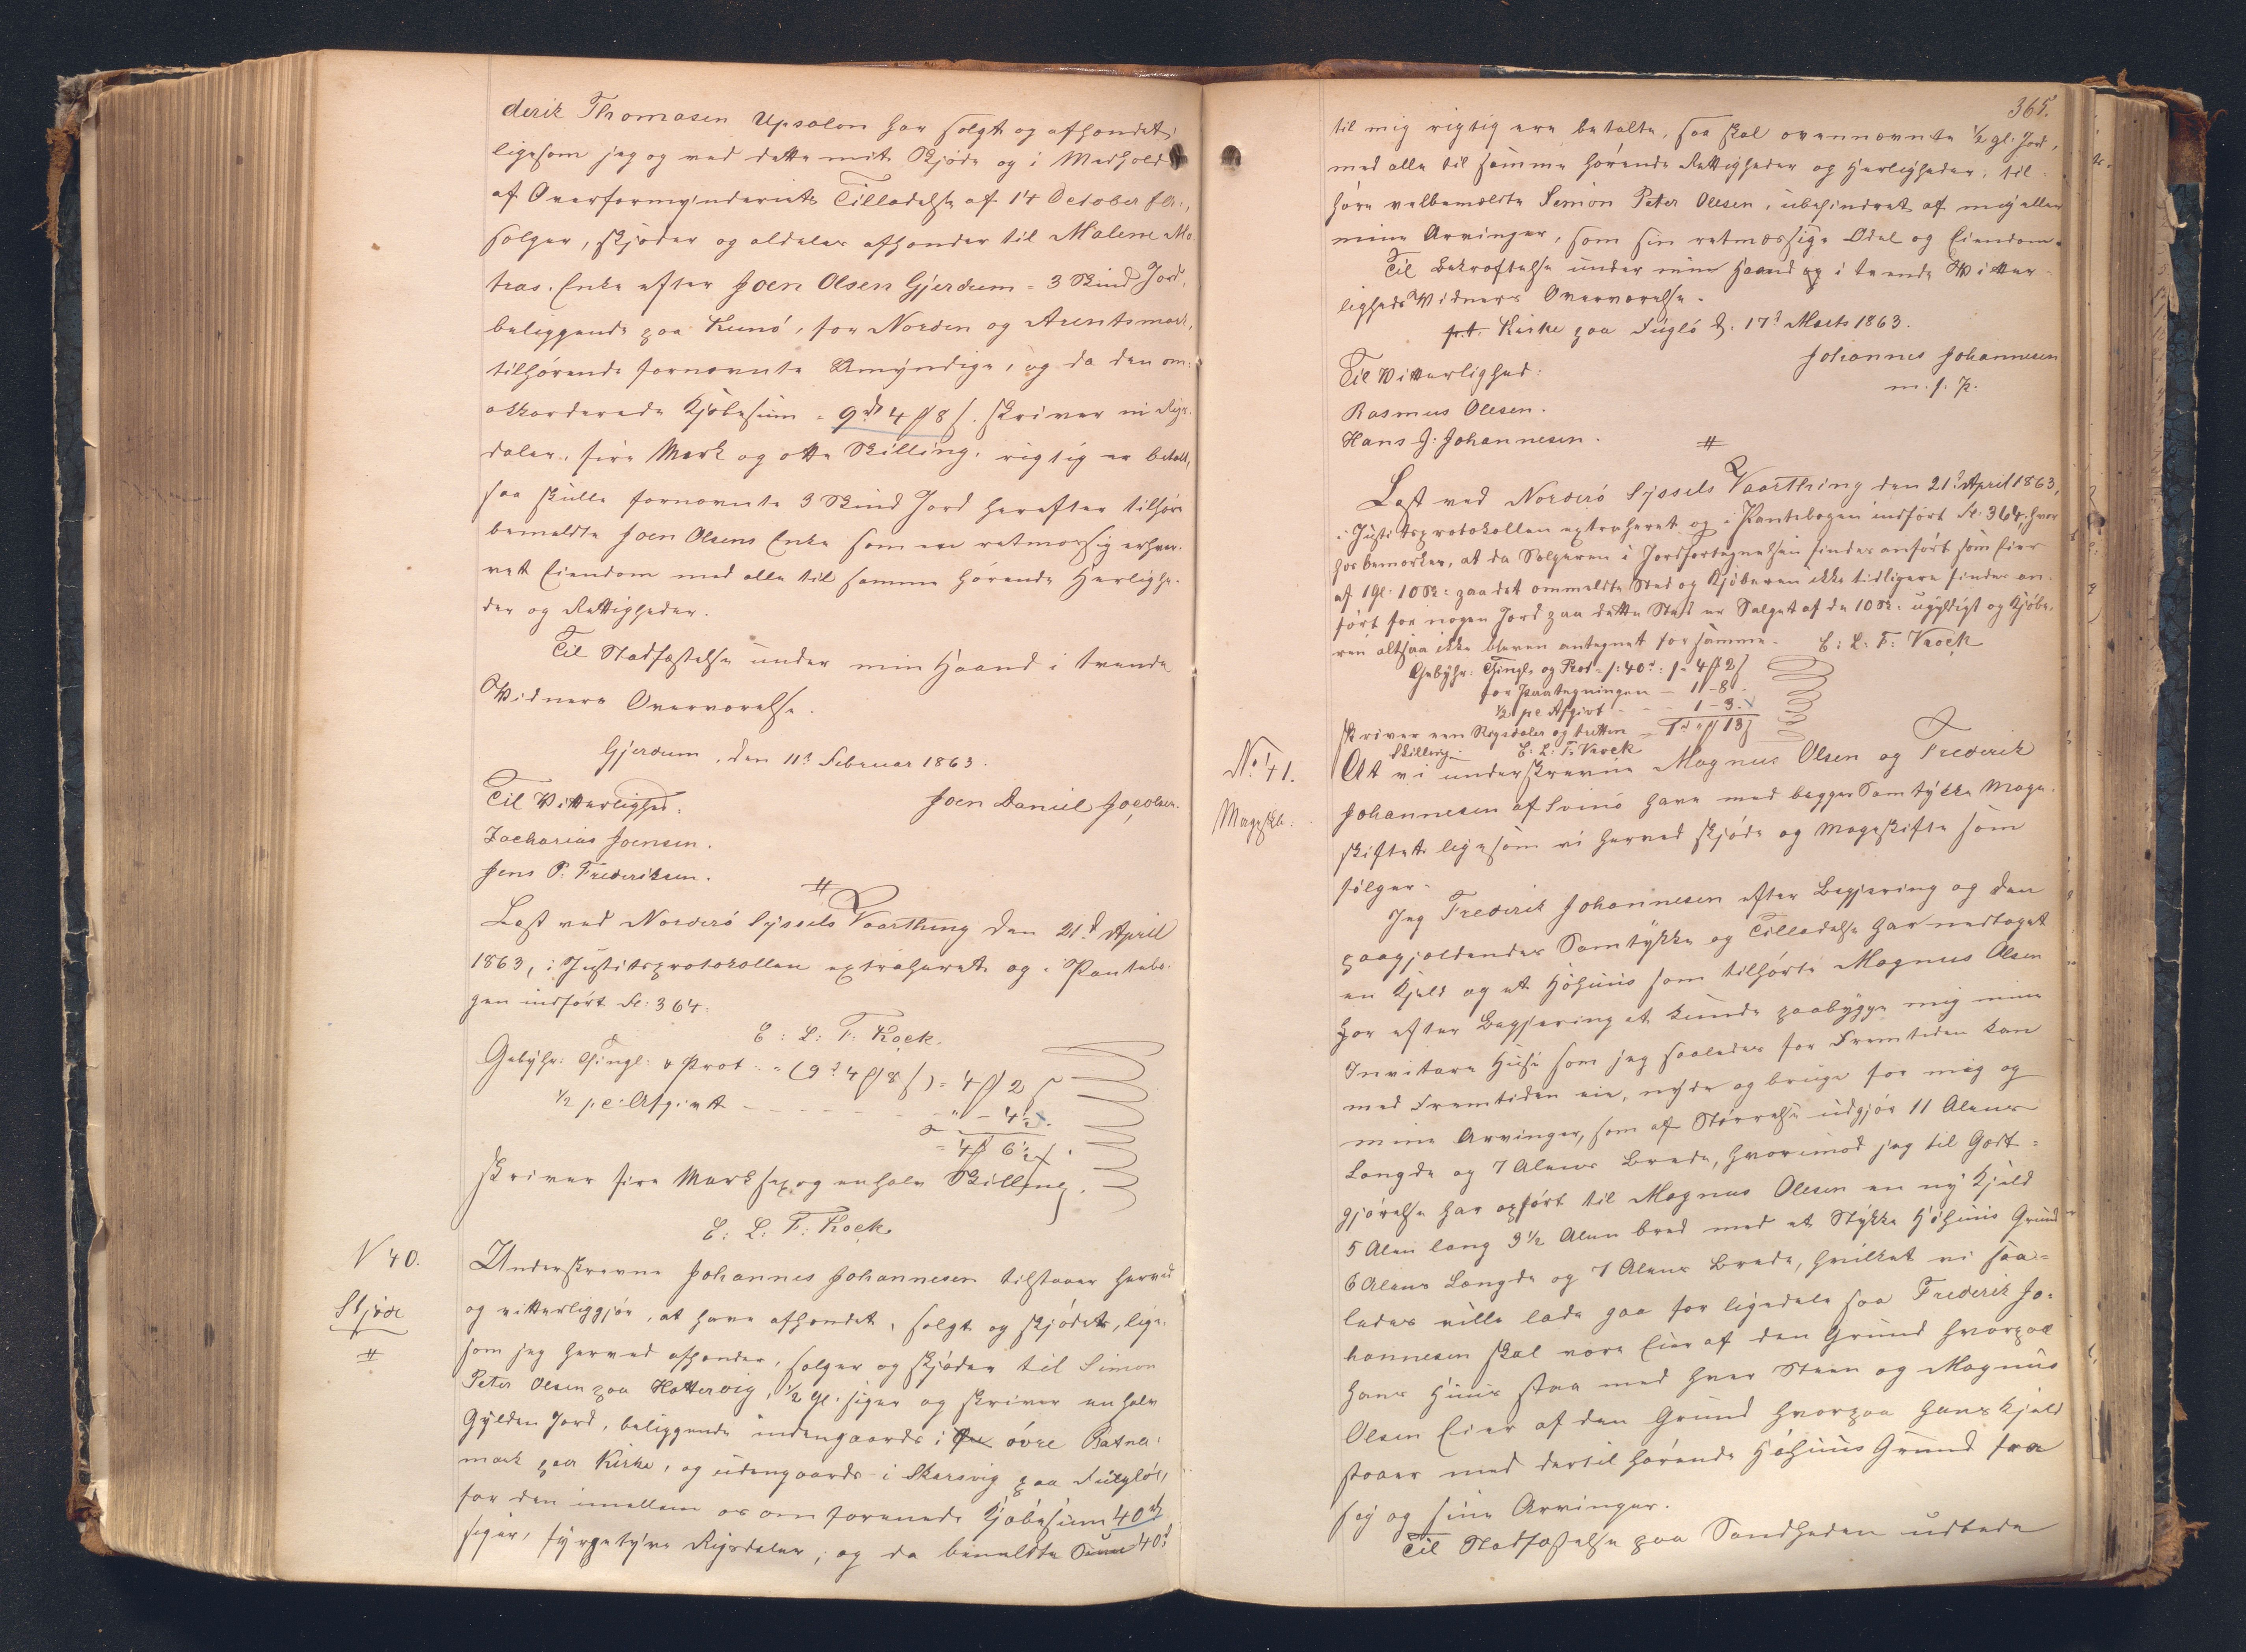 derik Thomasen Upsalon har solgt og afhændet,
ligesom jeg og ved dette mit Skjøde og i Medhold
af Overformynderiets Tilladelse af 14 October f. A.,
sælger, skjøder og aldeles afhænder til Malene Ma-
tras. Enke efter Joen Olsen Gjerdum = 3 Skind Jord,
beliggende paa Kunö, for Norden og Arentsmark,
tilhørende fornævnte Umyndige, og da den om-
akkorderede Kjøbesum = 9 rd 4 ß 8 s. skriver ni Rigs-
daler, fire Mark og otte Skilling, rigtig er betalt,
saa skulle fornævnte 3 Skind Jord herefter tilhøre
bemeldte Joen Olsens Enke som en retmæssig erhver-
vet Eiendom med alle til samme hørende Herlighe-
der og Rettigheder.
Til Stadfæstelse under min Haand i tvende
Vidners Overværelse.
Gjerdum, den 11t Februar 1863.
Til Vitterlighed: Joen Daniel Jocolsen.
Zacharias Joensen.
Jens P. Frederiksen.
#
Læst ved Norderö Syssels Vaarthing den 21d April
1863, i Justitsprotokollen extraheret og i Pantebo-
gen indført Fl: 364.
E: L: F: Kock.
Gebyhr: Thingl: & Prot: = (9 d 4 ß 8 s) = 4 ß 2 s
½ pC: Afgivt - - - - - " - 4½.
= 4 ß 6½ s.
skriver fire Mark sex og en halv Skilling.
E. L. F. Kock.
N 40.
Skjøde
#
Underskrevne Johannes Johannesen tilstaaer herved
og vitterliggjør, at have afhændet, solgt og skjødet, lige-
som jeg herved afhænder, sælger og skjøder til Simon
Peter Olsen paa Hattervig, ½ gl. siger og skriver en halv
Gylden Jord, beliggende indengaards i øvre Batna-
mark paa Kirke, og udengaards i Skarsvig paa Fuglö,
for den imellem os om forenede Kjøbesum 40 rd
siger, fyrgetyve Rigsdaler, og da bemeldte Sum 40d
365.
til mig rigtig ere betalte, saa skal ovennævnte ½ gl. Jord,
med alle til samme hørende Rettigheder og Herligheder, til-
høre velbemeldte Simon Peter Olesen, ubehindret af mig eller
mine Arvinger, som sin retmæssige Odel og Eiendom.
Til Bekræftelse under min Haand og i tvende Vitter-
ligheds Vidners Overværelse.
p.t. Kirke paa Fuglö d. 17d Marts 1863.
Til Vitterlighed: Johannes Johannesen
m. f. P.
Rasmus Olesen.
Hans J. Johannesen.
#
Læst ved Norderö Syssels Vaarthing den 21d April 1863,
i Justitsprotokollen extraheret og i Pantebogen indført Fl: 364, hvor-
hos bemærkes, at da Sælgeren i Jordfortegnelsen findes anført som Eier
af 1 gl. 10 Sk: paa det ommeldte Sted og Kjøberen ikke tidligere findes an-
ført for nogen Jord paa dette Sted er Salget af de 10 Sk. ugyldigt og Kjøbe-
ren altsaa ikke bleven antegnet for samme. E: L: F: Kock
Gebyhr: Thingl. og Prot. (: 40d :) = 4 ß 2 s
for Paategningen - 1 - 8.
½ pC Afgivt - - - 1 - 3.
skriver een Rigsdaler og tretten = 1 d " ß 13 s
Skilling. E. L. F. Kock
No 41.
Mageskb.
At vi underskrevne Magnus Olsen og Frederik
Johannesen af Svinö have med begges Samtykke Mage-
skiftet ligesom vi herved skjøde og Mageskifte som
følger.
Jeg Frederik Johannesen efter Begjæring og den
paagjældendes Samtykke og Tilladelse har nedtaget
en Kjeld og et Høhuus som tilhørte Magnus Olsen
har efter Begjæring at kunde paabygge mig mine
Invitare Huse som jeg saaledes for Fremtiden kan
med Fremtiden eie, nyde og bruge for mig og
mine Arvinger, som af Størrelse udgjør 11 Alens
Længde og 7 Alens Brede, hvorimod jeg til Godt-
gjørelse har opført til Magnus Olesen en ny Kjeld
5 Alen lang 3½ Alen bred med et Stykke Høhuus Grund
6 Alens Længde og 7 Alens Brede, hvilket vi saa-
ledes ville lade gaa for ligedele saa Frederik Jo-
hannesen skal være Eier af den Grund hvorpaa
hans Huus staa med hver Steen og Magnus
Olsen Eier af den Grund hvorpaa hans Kjeld
staaer med dertil hørende Høhuus Grund for
sig og sine Arvinger.
Til Stadfæstelse paa Sandheden udbede